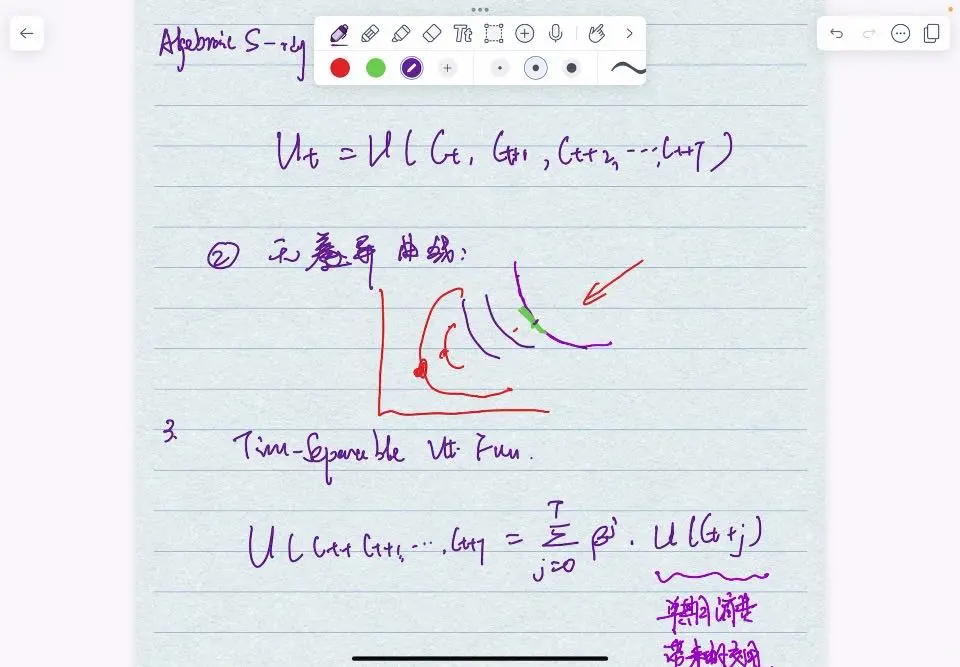 Algebraic S-
Tt
U_t = U(C_t, C_{t+1}, C_{t+2}, ..., C_{t+T})
② 无差异曲线:
3.
Time-Separable Uti. Fun.
U(C_t, C_{t+1}, ..., C_{t+T} = \sum_{j=0}^{T} β^j · U(C_{t+j})
单期消费
带来的效用